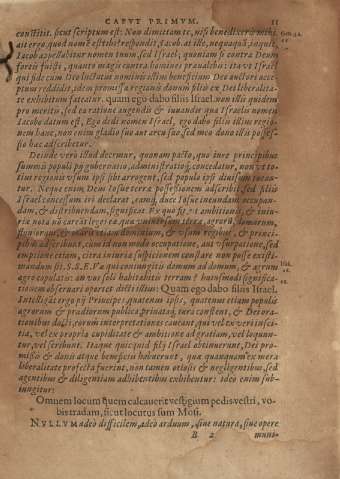 CAPVT PRIMVM. 11
constitit. Sicut scriptum est: Non dimittam te, nisi benedixeris mihi, Gen. 32.
ait ergo, quod nomen est tibi? respondit, Iacob. at ille, nequaquam, inquit,
Iacob appellabitur nomen tuum, sed Israel; quoniam si contra Deum
fortis fuisti, quanto magis contra homines praualebis: ita vt Israel
qui fide cum Deo luctatus nominis illius beneficium Deo auctori accep-
tum reddidit, idem promissa regionis domum filiis ex Dei liberalita-
te exhibitum fateatur. quam ego dabo filiis Israel non illis quidem
pro meritis, sed ea ratione augendis & iuuandis qua Israelis nomen
Iacobo datum est, Ego dedi nomen Israel, ego dabo filiis illius regio-
nem hanc, non enim gladio suo aut arcu suo, sed meo dono illis posses-
sio hac adscribetur.
Deinde vero illud decernit, quonam pacto, quo iure principibus
summis populi in gubernatio, administratioque concedatur, non vt to-
tius regionis vsum ipsi sibi arrogent, sed populo ipsi diuisum tuean-
tur. Neque enim Deus Iosue terra possessionem adscribit, sed filiis
Israel concessum iri declarat, eamque duce Iosue ineundam occupan-
dam, & distribuendam, significat.
iuria nota non caret lex
fluuiorum, & dominium, & vsum regibus & princi-
pibus adscribunt, cum id non modo occupatione, aut vsurpatione, sed
emptione etiam, citra iniuria suspicionem constare non posse existi-
mandum sit. S. S. E. Va qui coniungitis domum ad domum, & agrum Isai.
agro copulatis: an vos soli habitabitis terram? huiusmodi significa-
tionem obseruari oportet dicti illius: Quam ego dabo filiis Israel.
Intelligat ergo Principes quatenus ipsis, quatenus etiam populis
agrorum & praediorum publica, priuataque iura constent, & De ora-
tionibus docti, eorum interpretationes caueant, qui vel ex veri insci-
tia, vel ex propria cupiditate & ambitione ad gratiam, vel loquun-
tur, vel scribunt. Itaque quicquid filii Israel obtinuerunt, Dei pro-
missio & donis atque beneficiis habuerunt, qua quanquam ex mera
liberalitate profecta fuerint, non tamen otiosis & negligentibus, sed
agentibus & diligentiam adhibentibus exhibentur: ideo enim sub-
iungitur:
Omnem locum quem calcauerit vestigium pedis vestri, vo-
bis tradam, sicut locutus sum Mosi.
NVLLVM adeo difficilem, adeo arduum, siue natura, siue opere
B 2 muni-